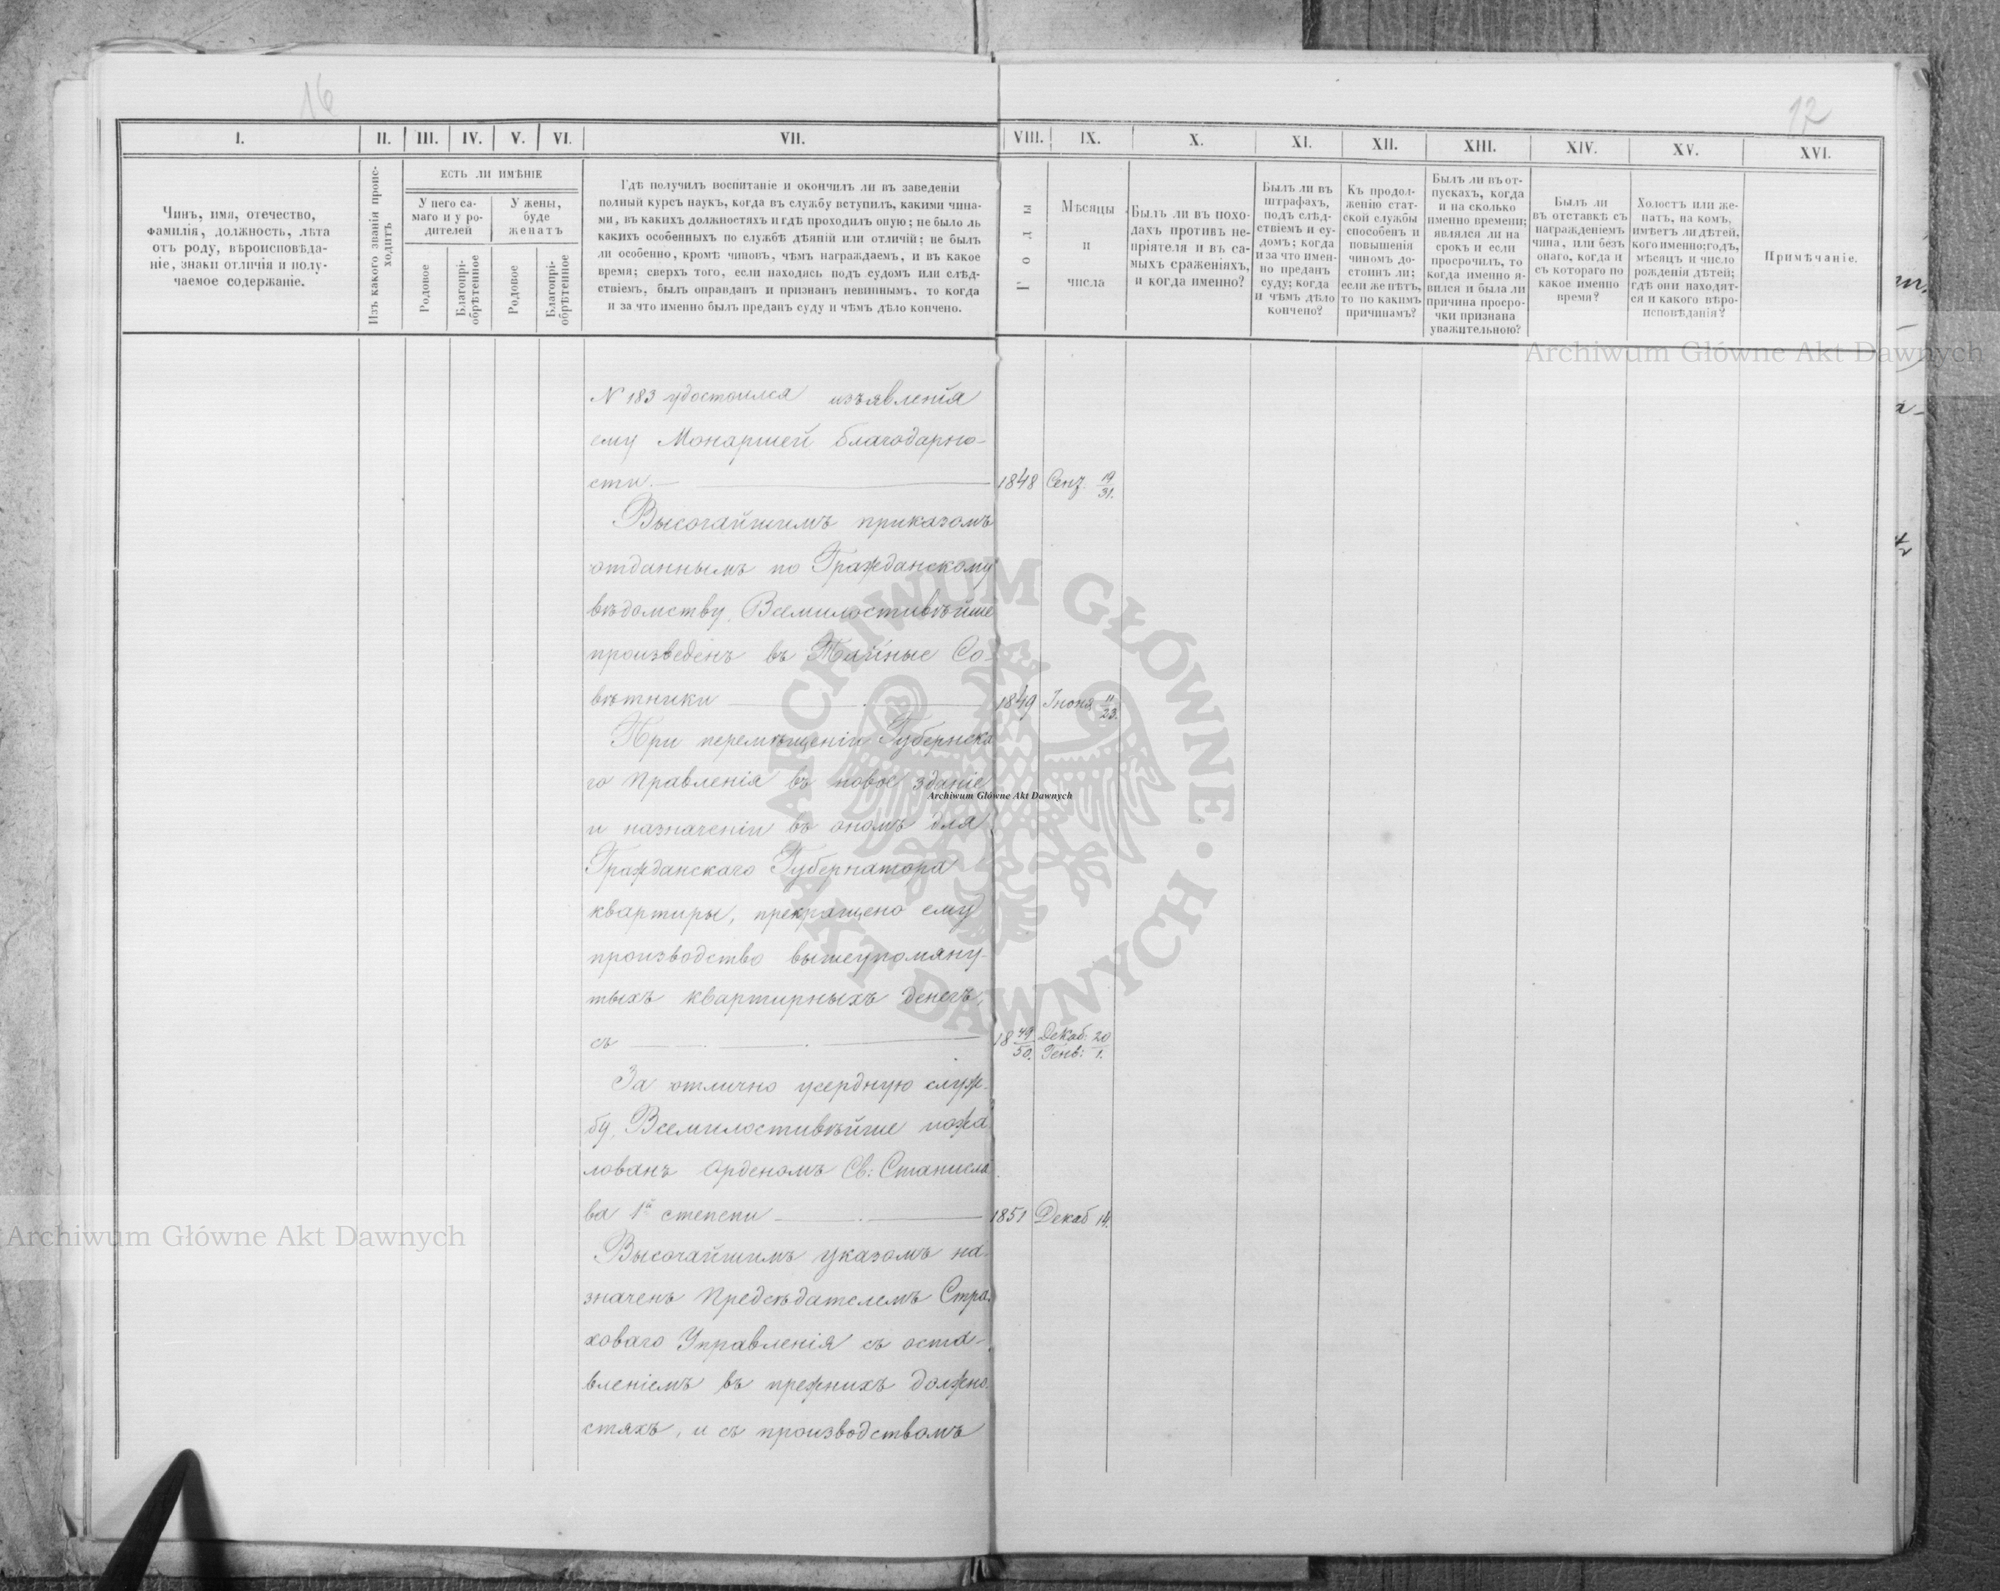 16
12
I.
II.
III.
IV.
V.
VI.
VII.
VIII.
IX.
X.
XI.
XII.
XIII.
XIV.
XV.
XVI.
Чинъ, имя, отечество,
фамилія, должность, лѣта
отъ роду, вѣроисповѣда-
ніе, знаки отличія и полу-
чаемое содержаніе.
Изъ какого званія проис-
ходитъ
ЕСТЬ ЛИ ИМѢНІЕ
У него са-
маго и у ро-
дителей
У жены,
буде
женатъ
Родовое
Благопрі-
обрѣтенное
Родовое
Благопрі-
обрѣтенное
Гдѣ получилъ воспитаніе и окончилъ ли въ заведеніи
полный курсъ наукъ, когда въ службу вступилъ, какими чина-
ми, въ какихъ должностяхъ и гдѣ проходилъ оную; не было ль
какихъ особенныхъ по службѣ дѣяній или отличій; не былъ
ли особенно, кромѣ чиновъ, чѣмъ награждаемъ, и въ какое
время; сверхъ того, если находясь подъ судомъ или слѣд-
ствіемъ, былъ оправданъ и признанъ невиннымъ, то когда
и за что именно былъ преданъ суду и чѣмъ дѣло кончено.
Годы
Мѣсяцы
и
числа
Былъ ли въ похо-
дахъ противъ не-
пріятеля и въ са-
мыхъ сраженіяхъ,
и когда именно?
Былъ ли въ
штрафахъ,
подъ слѣд-
ствіемъ и су-
домъ; когда
и за что имен-
но преданъ
суду; когда
и чѣмъ дѣло
кончено?
Къ продол-
женію стат-
ской службы
способенъ и
повышенія
чиномъ до-
стоинъ ли;
если же нѣтъ,
то по какимъ
причинамъ?
Былъ ли въ от-
пускахъ, когда
и на сколько
именно времени;
являлся ли на
срокъ и если
просрочилъ, то
когда именно я-
вился и была ли
причина просро-
чки признана
уважительною?
Былъ ли
въ отставкѣ съ
награжденіемъ
чина, или безъ
онаго, когда и
съ котораго по
какое именно
время?
Холостъ или же-
натъ, на комъ,
имѣетъ ли дѣтей,
кого именно; годъ,
мѣсяцъ и число
рожденія дѣтей;
гдѣ они находят-
ся и какого вѣро-
исповѣданія?
Примѣчаніе.
N 183 удостоился изъявленія
ему Монаршей благодарно-
сти. — 1848 Сент. 19/31.
Высочайшимъ приказомъ
отданнымъ по Гражданскому
вѣдомству, Всемилостивѣйше
произведенъ въ Тайные Со-
вѣтники — 1849 Іюня 11/23.
При перемѣщеніи Губернска
го Правленія въ новое зданіе
и назначеніи въ ономъ для
Гражданскаго Губернатора
квартиры, прекращено ему
производство вышеупомяну-
тыхъ квартирныхъ денегъ,
съ — 18 49/50. Декаб: 20 Генв: 1.
За отлично усердную служ-
бу, Всемилостивѣйше пожа
лованъ Орденомъ Св: Станисла
ва 1й степени — 1851 Декаб 14.
Высочайшимъ указомъ на-
значенъ Предсѣдателемъ Стра-
ховаго Управленія съ оста-
вленіемъ въ прежнихъ должно-
стяхъ, и съ производствомъ
Archiwum Główne Akt Dawnych
Archiwum Główne Akt Dawnych
Archiwum Główne Akt Dawnych
ARCHIWUM GŁÓWNE · AKT DAWNYCH ·